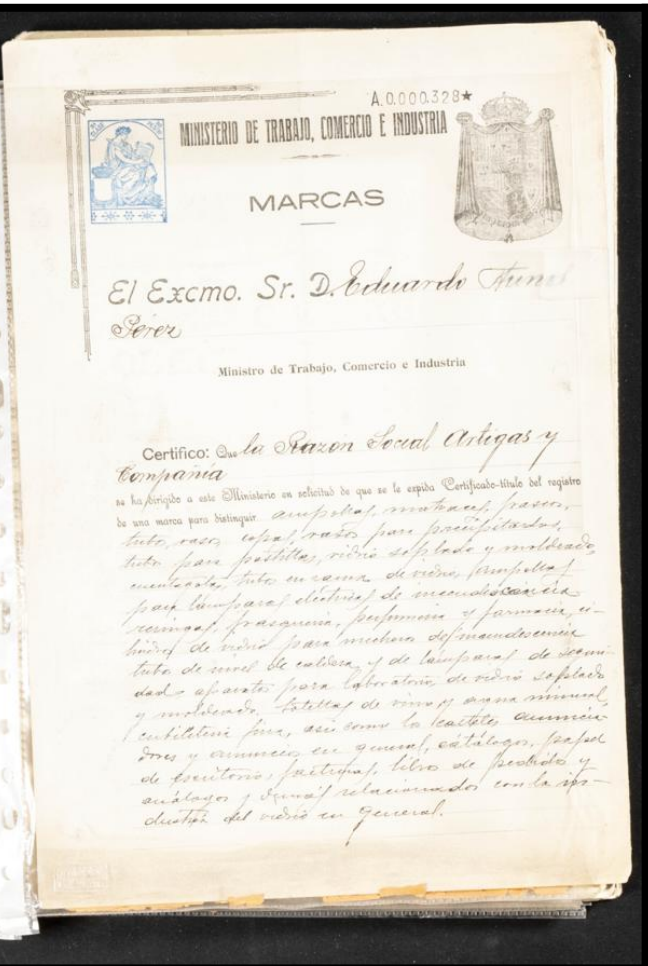 A.0.000.328★
MINISTERIO DE TRABAJO, COMERCIO E INDUSTRIA
MARCAS
El Excmo. Sr. D. Eduardo Aunós
Pérez
Ministro de Trabajo, Comercio e Industria
Certifico: Que la Razón Social Artigas y
Compañía
se ha dirigido a este Ministerio en solicitud de que se le expida Certificado-título del registro
de una marca para distinguir ampollas, matraces, frascos,
tubos, vasos, copas, vasos para precipitados,
tubos para pastillas, vidrio soplado y moldeado,
cuentagotas, tubos en rama de vidrio, ampollas
para lámparas eléctricas de incandescencia
jeringas, frasquería, perfumería y farmacia, ci-
lindros de vidrio para mecheros de incandescencia
tubos de nivel de caldera, y de lámparas de seguri-
dad, aparatos para laboratorio de vidrio soplado
y moldeado, botellas de vinos y agua mineral,
cubiletería fina, así como los carteles anuncia-
dores y anuncios en general, catálogos, papel
de escritorio, facturas, libros de pedidos y
análogos y demás relacionados con la in-
dustria del vidrio en general.